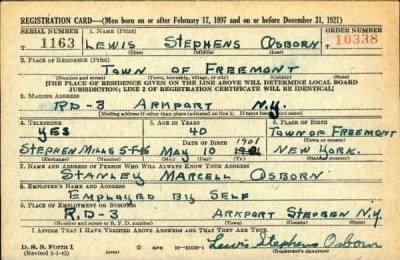 REGISTRATION CARD—(Men born on or after February 17, 1897 and on or before December 31, 1921)
SERIAL NUMBER 1. NAME (Print) ORDER NUMBER
T 1163 LEWIS STEPHENS OSBORN T 10338
(First) (Middle) (Last)
2. PLACE OF RESIDENCE (Print)
TOWN OF FREEMONT
(Number and street) (Town, township, village, or city) (County) (State)
[THE PLACE OF RESIDENCE GIVEN ON THE LINE ABOVE WILL DETERMINE LOCAL BOARD
JURISDICTION; LINE 2 OF REGISTRATION CERTIFICATE WILL BE IDENTICAL]
3. MAILING ADDRESS
RD-3 ARKPORT N.Y.
[Mailing address if other than place indicated on line 2. If same insert word same]
4. TELEPHONE 5. AGE IN YEARS 6. PLACE OF BIRTH
YES 40 TOWN OF FREEMONT
DATE OF BIRTH 1901 (Town or county)
STEPHEN MILLS 5-F-15 MAY 10 NEW YORK.
(Exchange) (Number) (Mo.) (Day) (Yr.) (State or country)
7. NAME AND ADDRESS OF PERSON WHO WILL ALWAYS KNOW YOUR ADDRESS
STANLEY MARCELL OSBORN
8. EMPLOYER'S NAME AND ADDRESS
EMPLOYED BY SELF
9. PLACE OF EMPLOYMENT OR BUSINESS
R.D-3 ARKPORT STEUBEN N.Y.
(Number and street or R. F. D. number) (Town) (County) (State)
I AFFIRM THAT I HAVE VERIFIED ABOVE ANSWERS AND THAT THEY ARE TRUE.
D. S. S. Form 1 Lewis Stephens Osborn
(Revised 1-1-42) (Registrant's signature)